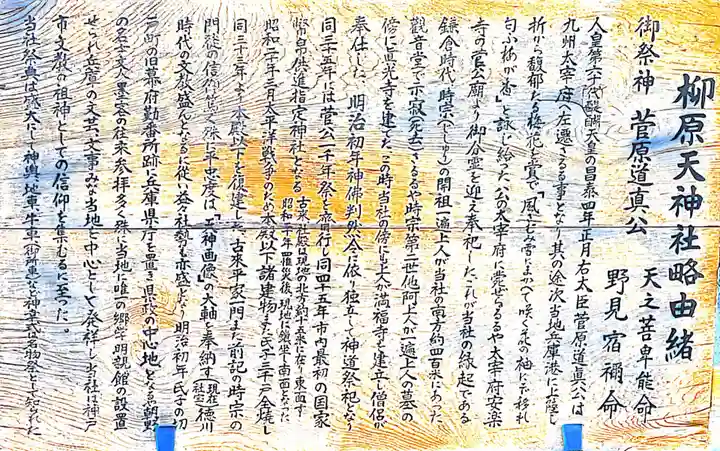 柳原天神社略由緒
御祭神 菅原道真公 天之菩卑能命
野見宿禰命
人皇第六十代醍醐天皇の昌泰四年正月右太臣菅原道真公は
九州太宰府へ左遷さるる事となり其の途次当地兵庫港に上陸し
折から馥郁たる梅花を賞で「風さむみ雪にまがへて咲く花の袖にぞ移れ
匂ふ梅が香」と詠じ給う。公の太宰府に薨ぜらるるや太宰府安楽
寺の菅公廟より御分霊を迎え奉祀したこれが当社の縁起である
鎌倉時代、時宗(じしゅう)の開祖一遍上人が当社の南方約四百米にあった
觀音堂で示寂(死去)さるるや時宗第二世他阿上人が一遍上人の墓の
傍に真光寺を建てた。この時当社の傍にも上人が満福寺を建立し僧侶が
奉仕した、明治初年神佛判然令に依り独立して神道祭祀となり
同三十五年には菅公一千年祭を斎行し同四十五年市内最初の国家
幣帛供進指定神社となる 古来社殿は現地の北方約十五米に在り東面す
昭和二十年罹災後、現地に鎮坐し南面となった
昭和二十年三月太平洋戦争のため本殿以下諸建物また氏子三千戸全焼し
同二十三年より本殿以下を復建した。古来平家一門また前記の時宗の
門徒の信仰篤く殊に平忠度は「天神画像」の大軸を奉納す(現在社宝)徳川
時代の文教盛んとなるに従い益々社勢も亦盛となり明治初年氏子の切
戸町の旧幕府勤番所跡に兵庫県庁を置き県政の中心地となるや朝野
の名士文人墨客の往来参拝多く殊に当地に唯一の郷学明親館の設置
せられ兵庫の文芸、文事みな当地を中心として発祥し当社は神戸
市文教の祖神としての信仰を集むるに至った。
当社祭典は盛大にして神輿、地車、牛車(御所車)など神幸式は名物祭として知られた